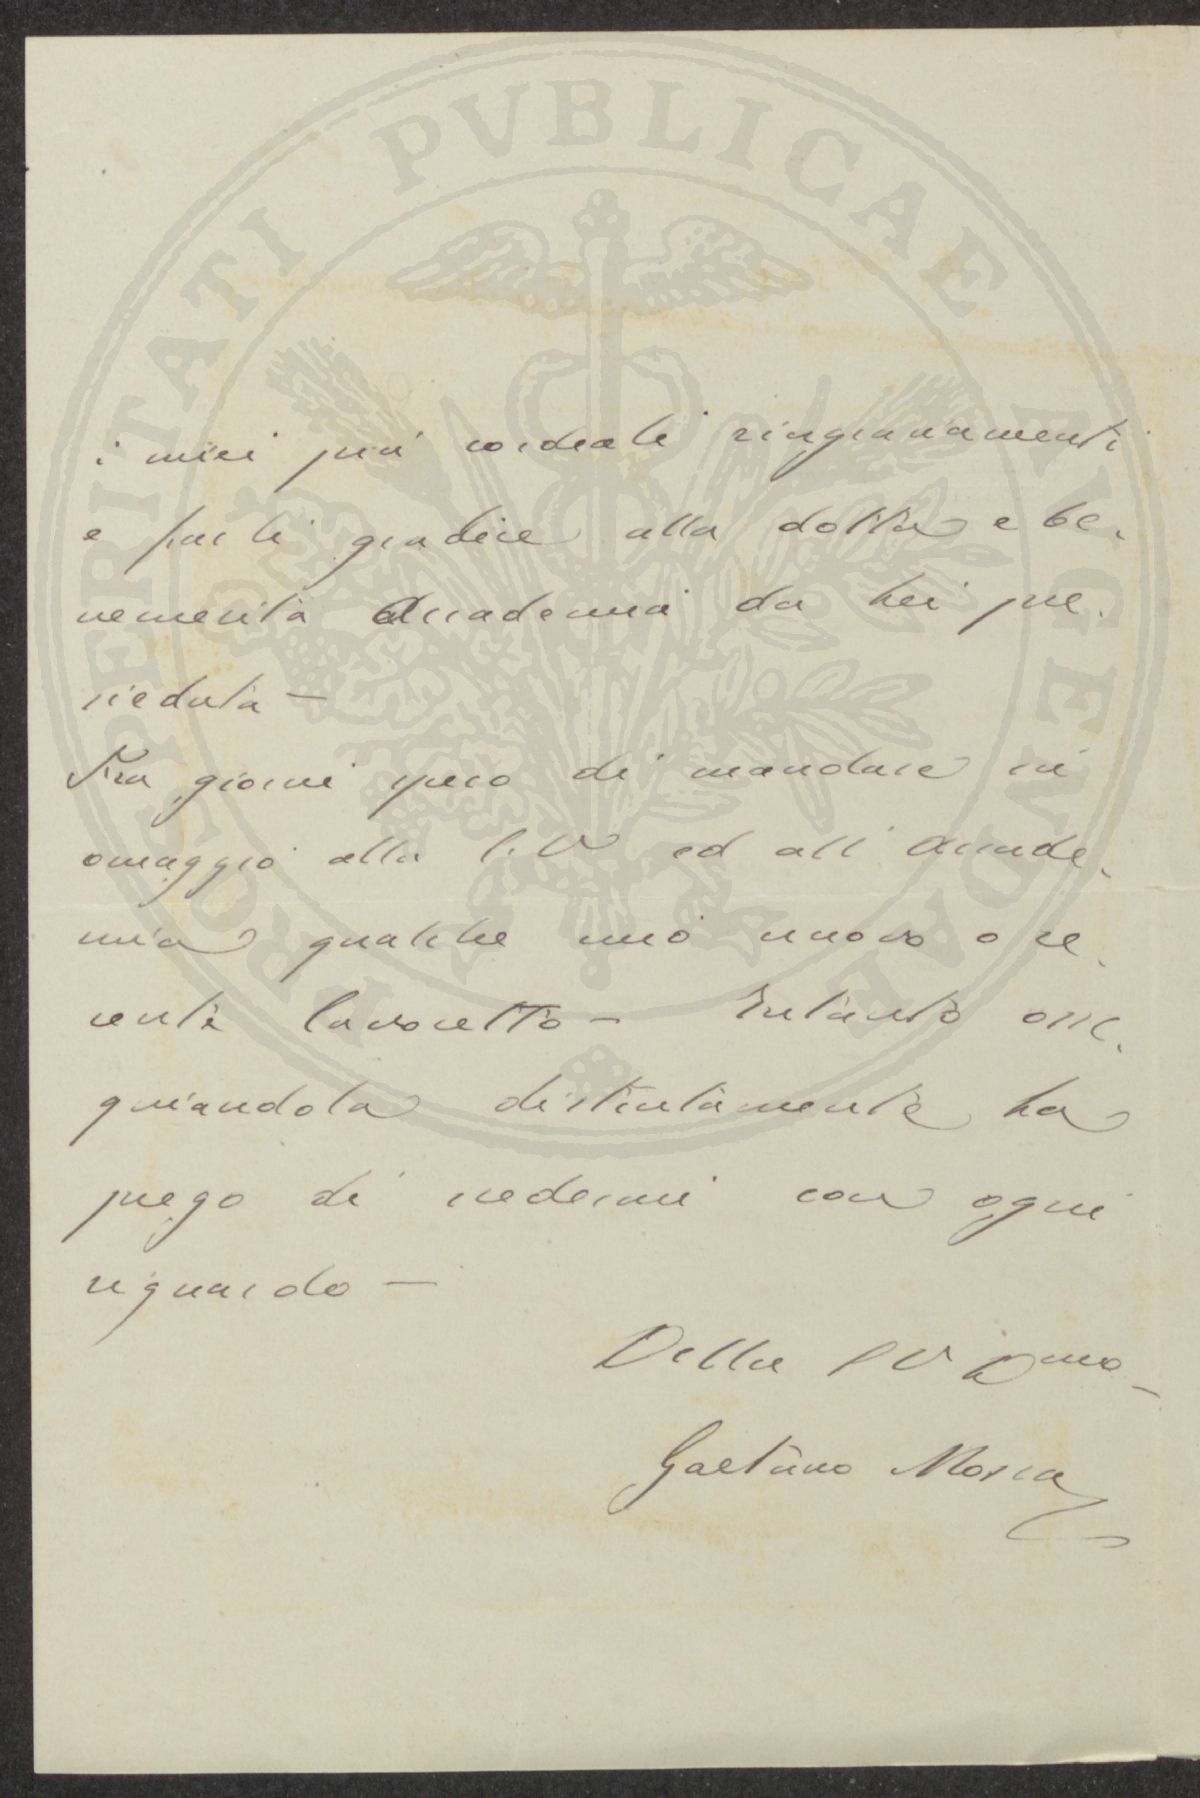 PROSPERITATI PVBLICAE AVGENDAE
i miei più cordiali ringraziamenti
e farli gradire alla dotta e be-
nemerita Accademia da Lei pre-
sieduta —
Fra giorni spero di mandare in
omaggio alla S. V ed all' Accade-
mia qualche mio nuovo o re-
cente lavoretto — Intanto osse-
quiandola distintamente La
prego di credermi con ogni
riguardo —
Della S V
Gaetano Mosca